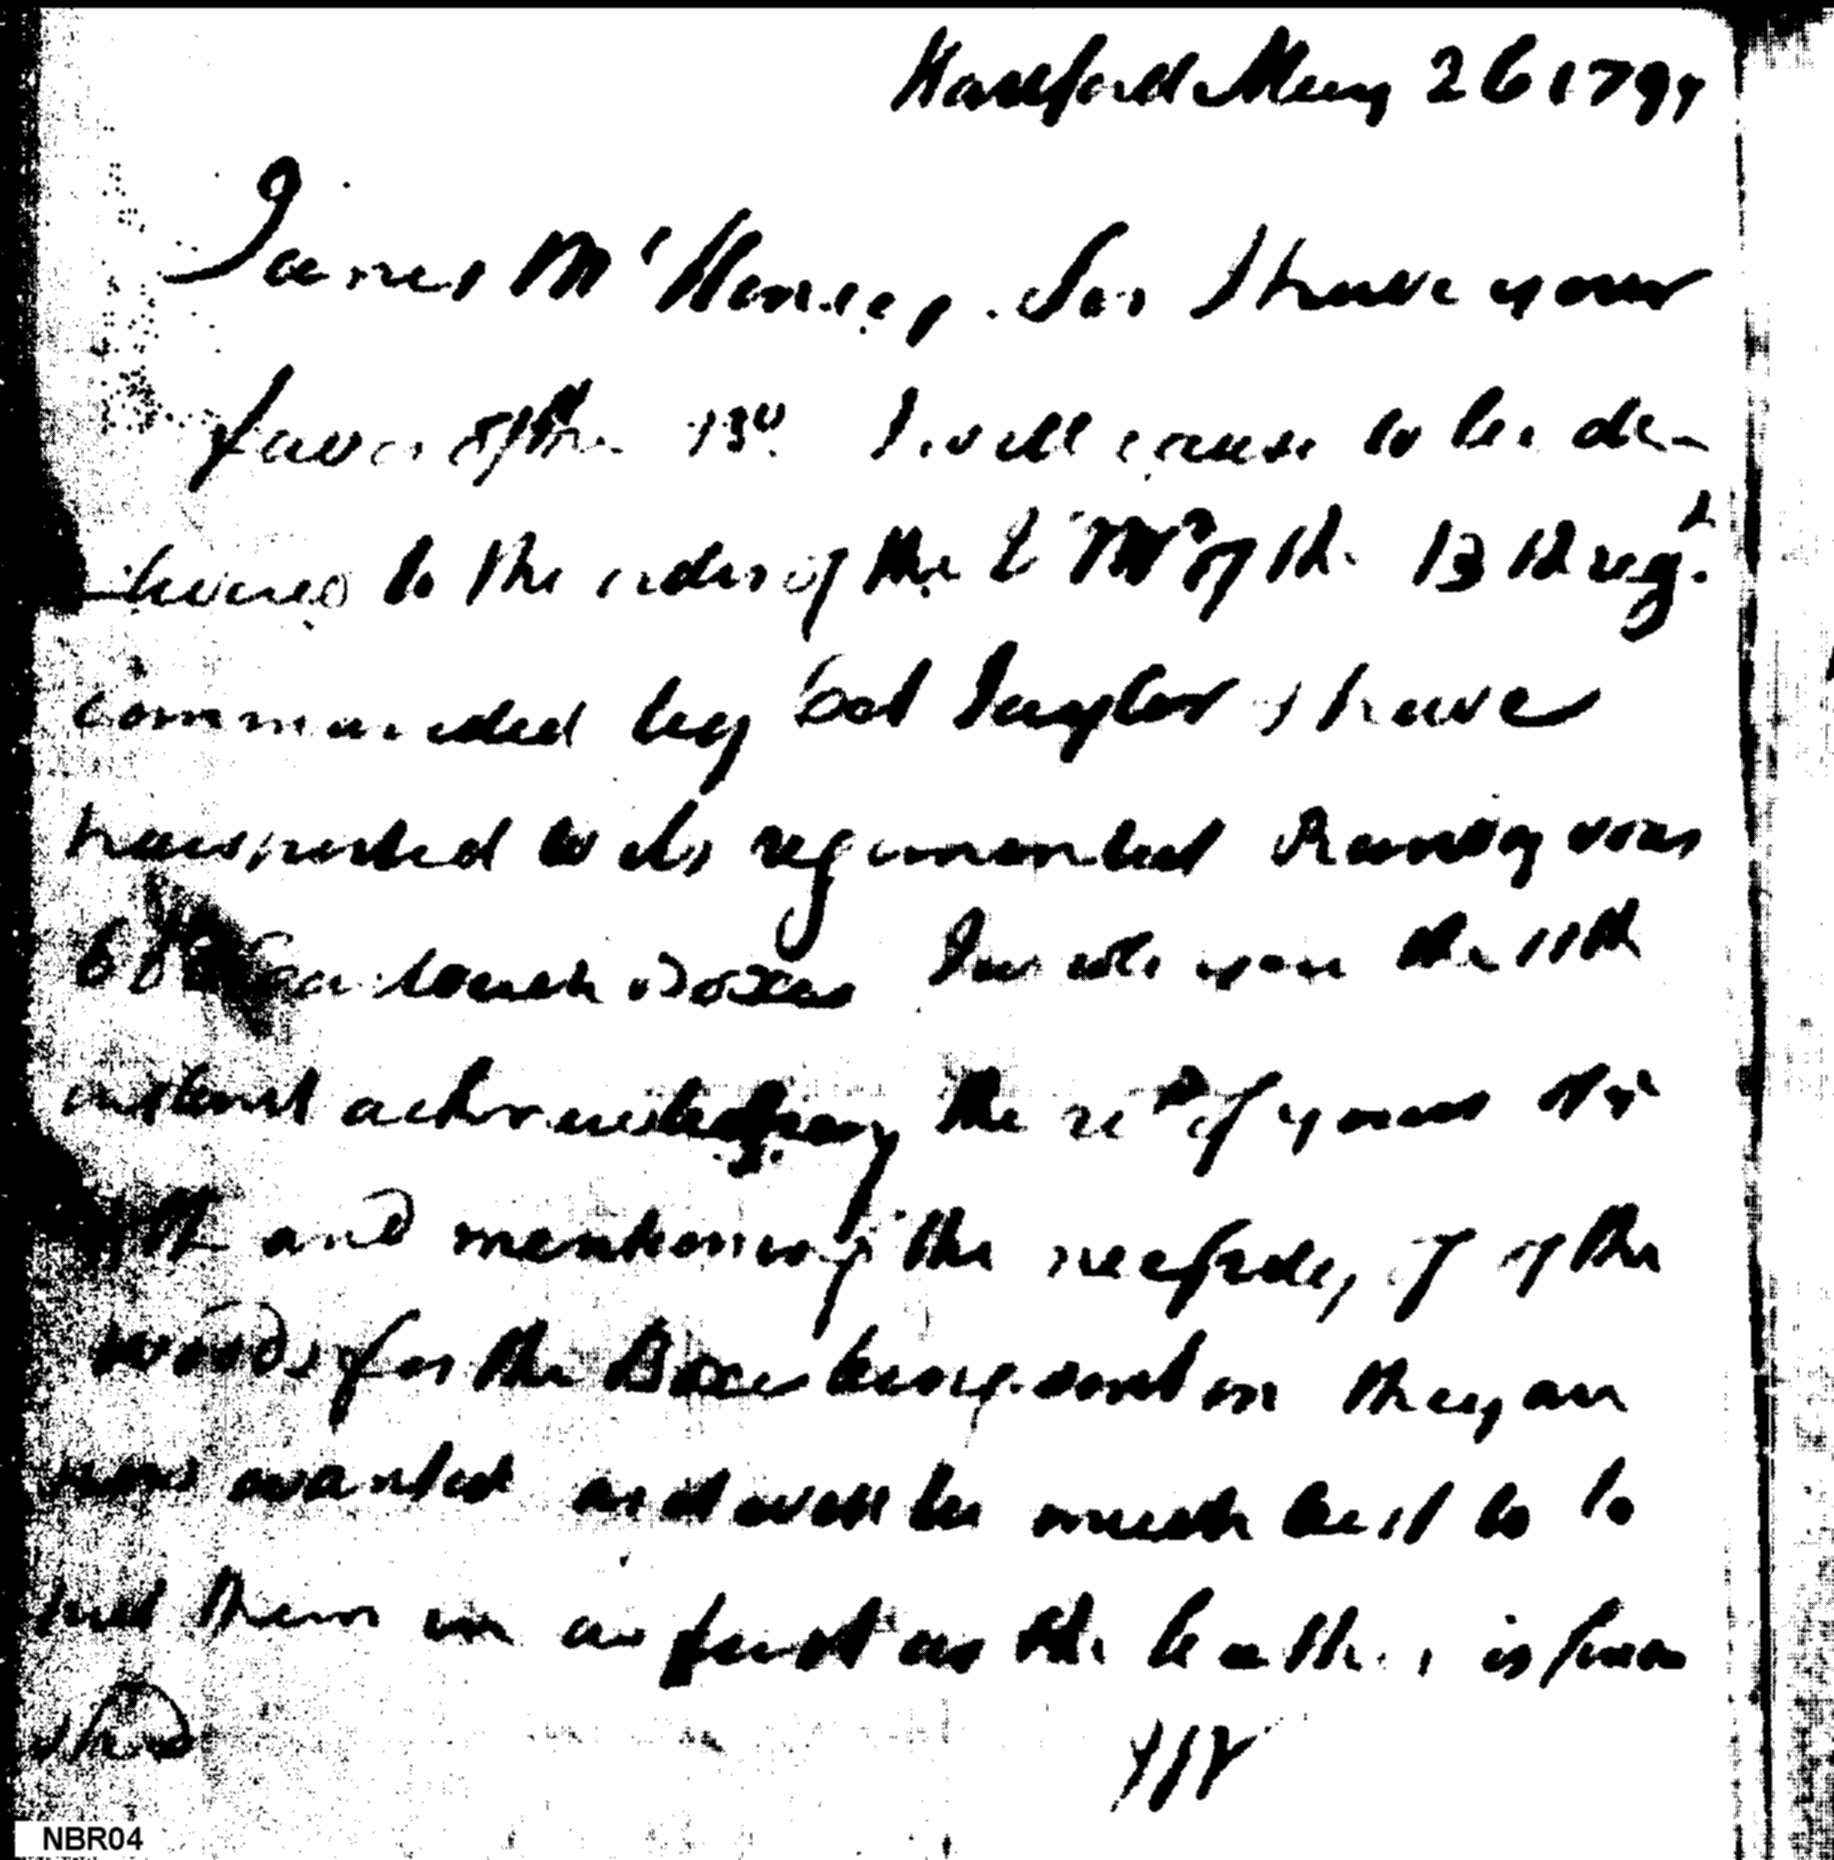 Hartford May 26 1799
James McHenry. Sir I have your
favor of the 13th I will cause to be de-
livered to the order of the Q Mr of the 13th regt
commanded by Col Taylor & have
transported to his regimental
Cartouch Boxes I wrote you the 11th
instant acknowledging the rect of yours
and mentioning the necessity of the
woods for the Boxes being sent on they are
now wanted and will be much best to to
put them in as fast as the leather is furn
ished
NBR04